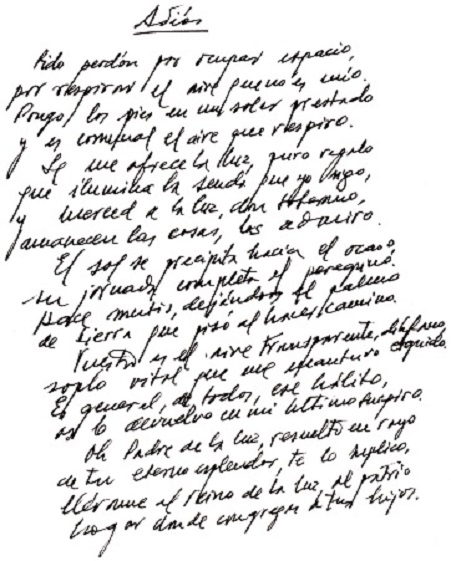 Adiós
Pido perdón por ocupar espacio,
por respirar el aire que no es mío.
Pongo los pies en un solar prestado
y es comunal el aire que respiro.
Se me ofrece la luz, puro regalo
que ilumina la senda que yo sigo,
y merced a la luz, don soberano,
amanecen las cosas, las admiro.
El sol se precipita hacia el ocaso,
su jornada completa el peregrino.
Hace mutis, dejándoos el palmo
de tierra que pisó al hacer camino.
Vuestro es el aire transparente, diáfano,
soplo vital que me mantuvo erguido.
Es general, de todos, ese hálito,
os lo devuelvo en mi último suspiro.
Oh Padre de la luz, resuelto en rayo
de tu eterno esplendor, te lo suplico,
llévame al Reino de la luz, al patrio
hogar donde congregas a tus hijos.